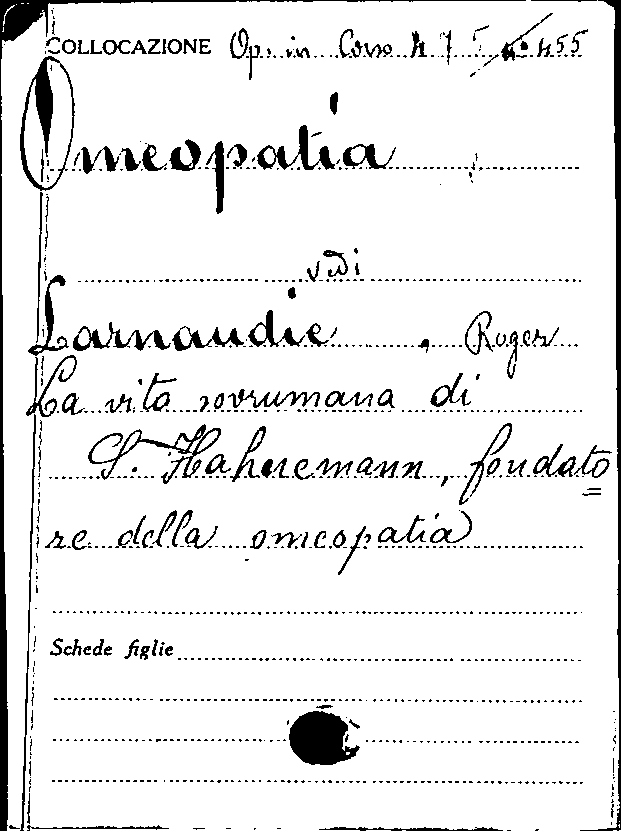 COLLOCAZIONE Op. in Corso 475 n° 455
Omeopatia
vedi
Larnaudie, Roger
La vita sovrumana di
S. Hahnemann, fondato
re della omeopatia
Schede figlie